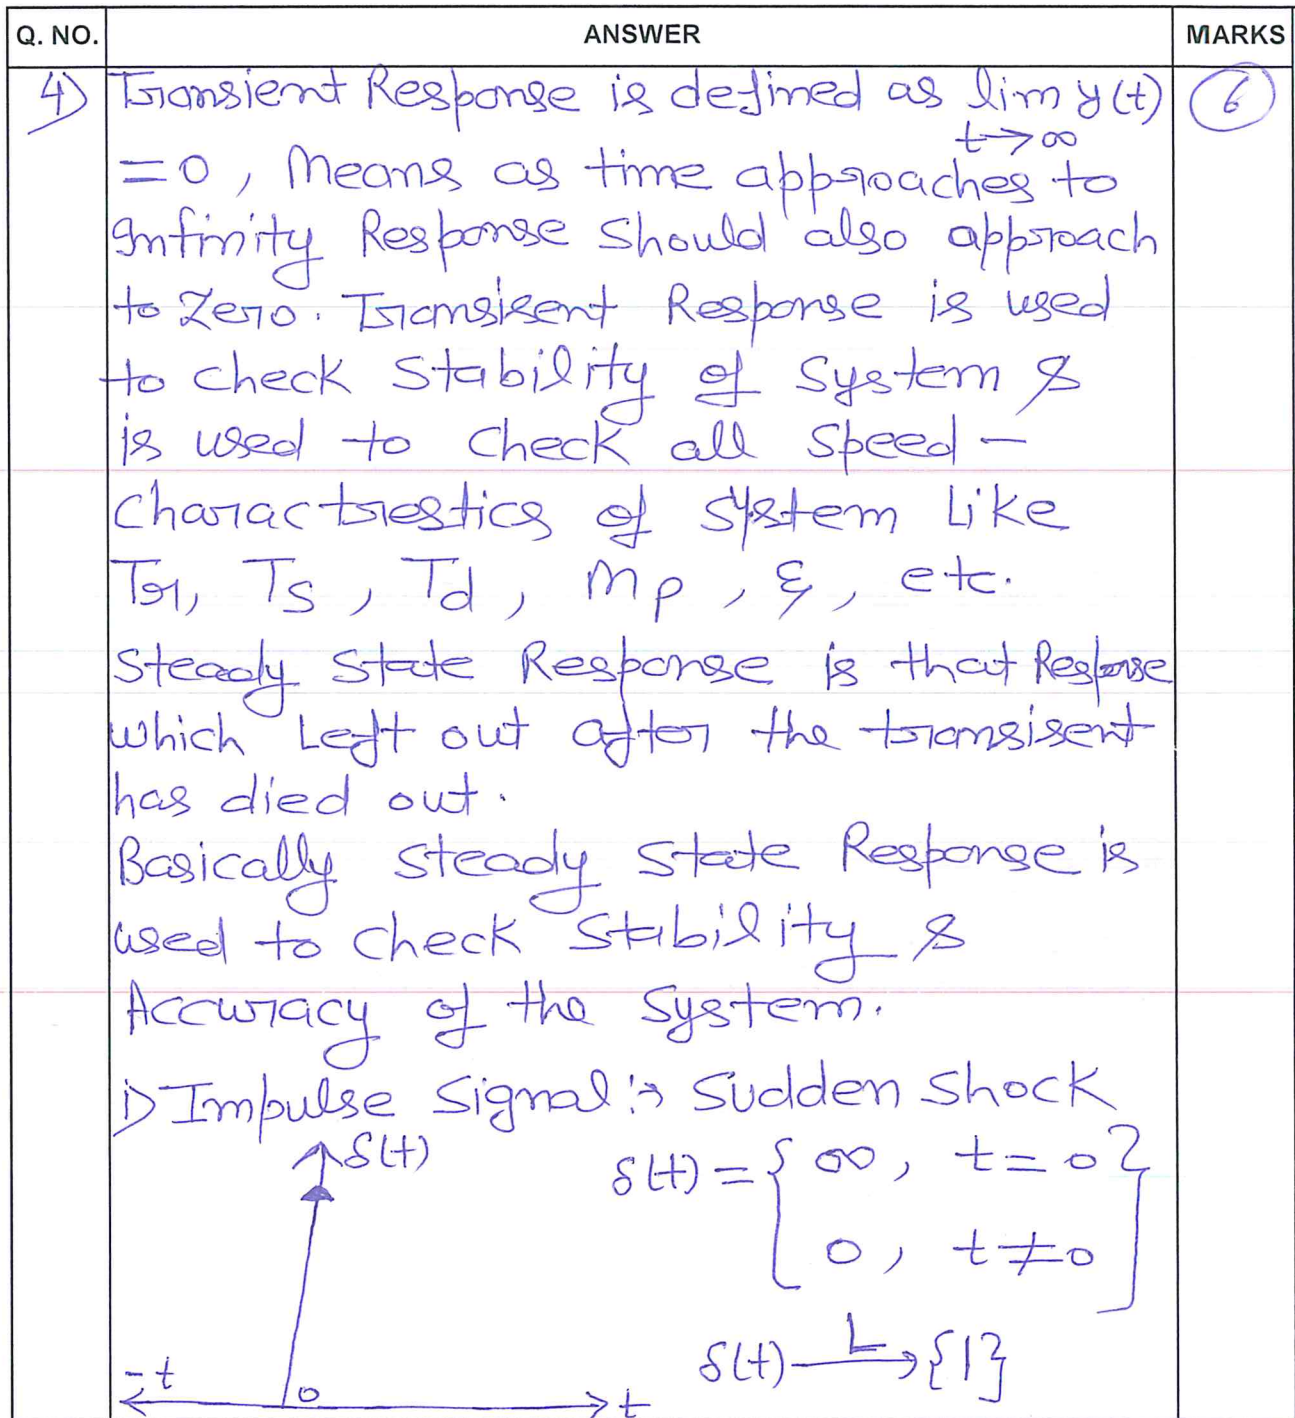 Q. NO. ANSWER MARKS
4) Transient Response is defined as lim y(t) 6
t→∞
=0, Means as time approaches to
Infinity Response should also approach
to Zero. Transisent Response is used
to check Stability of System &
is used to check all speed -
Charactrestics of system Like
Tr, Ts, Td, Mp, ξ, etc.
Steady State Response is that Response
which Left out after the transisent
has died out.
Basically steady state Response is
used to check Stability &
Accuracy of the System.
i) Impulse Signal :→ Sudden shock
δ(t) δ(t) = { ∞, t=0 }
0, t≠0
δ(t) L→ {1}
-t 0 t